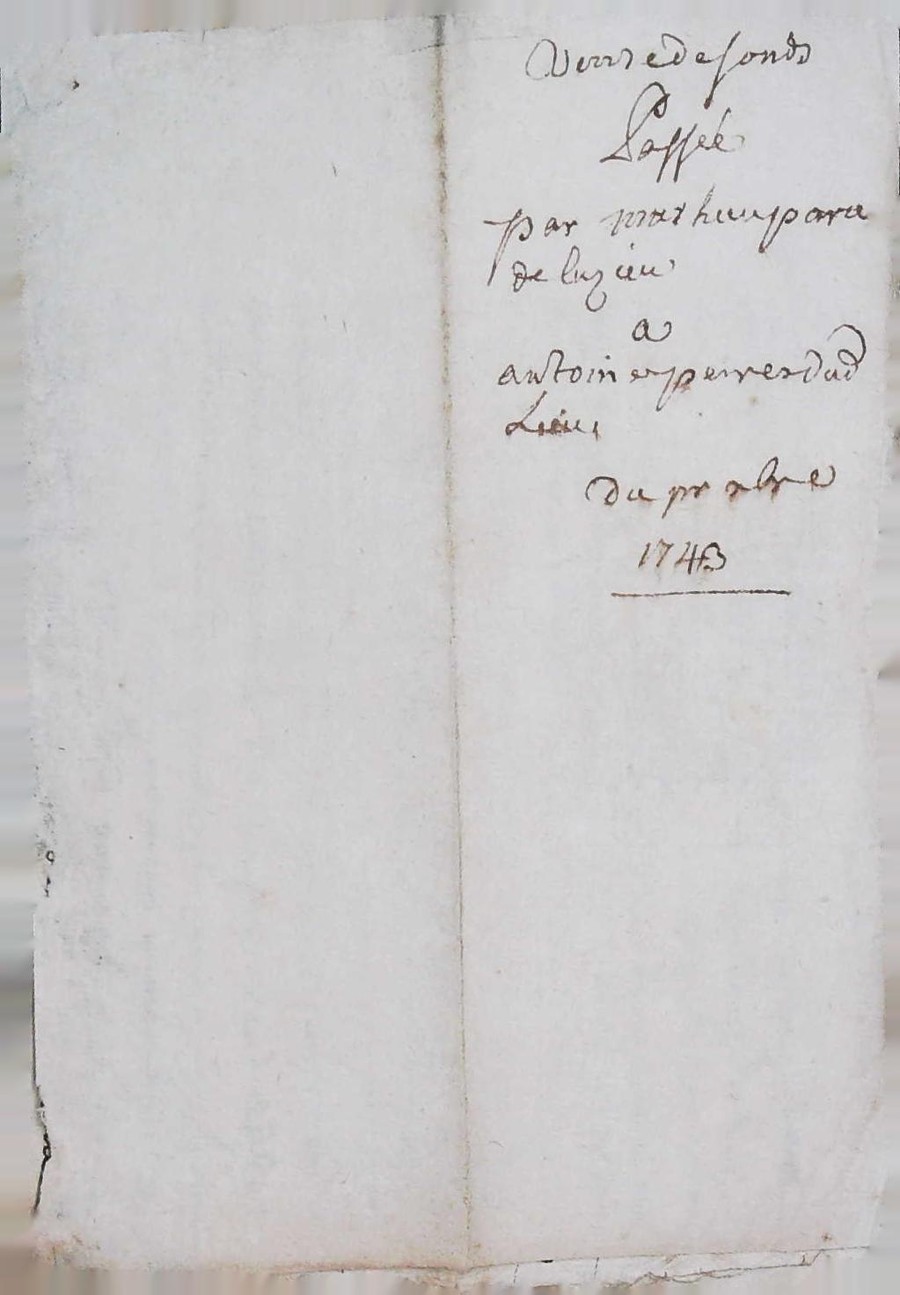 Vente de fonds
Passée
par mathieu para
de luzieu
a
antoine perrer dud
Lieu
du pr xbre
1743